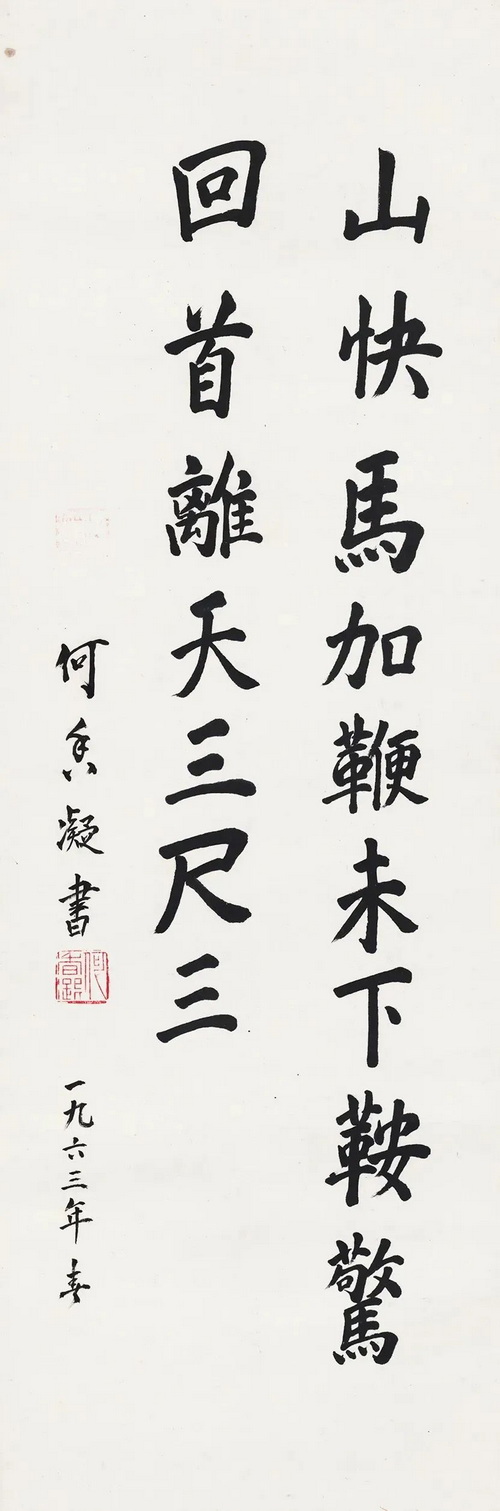 山快馬加鞭未下鞍驚
回首離天三尺三
何香凝書
一九六三年春